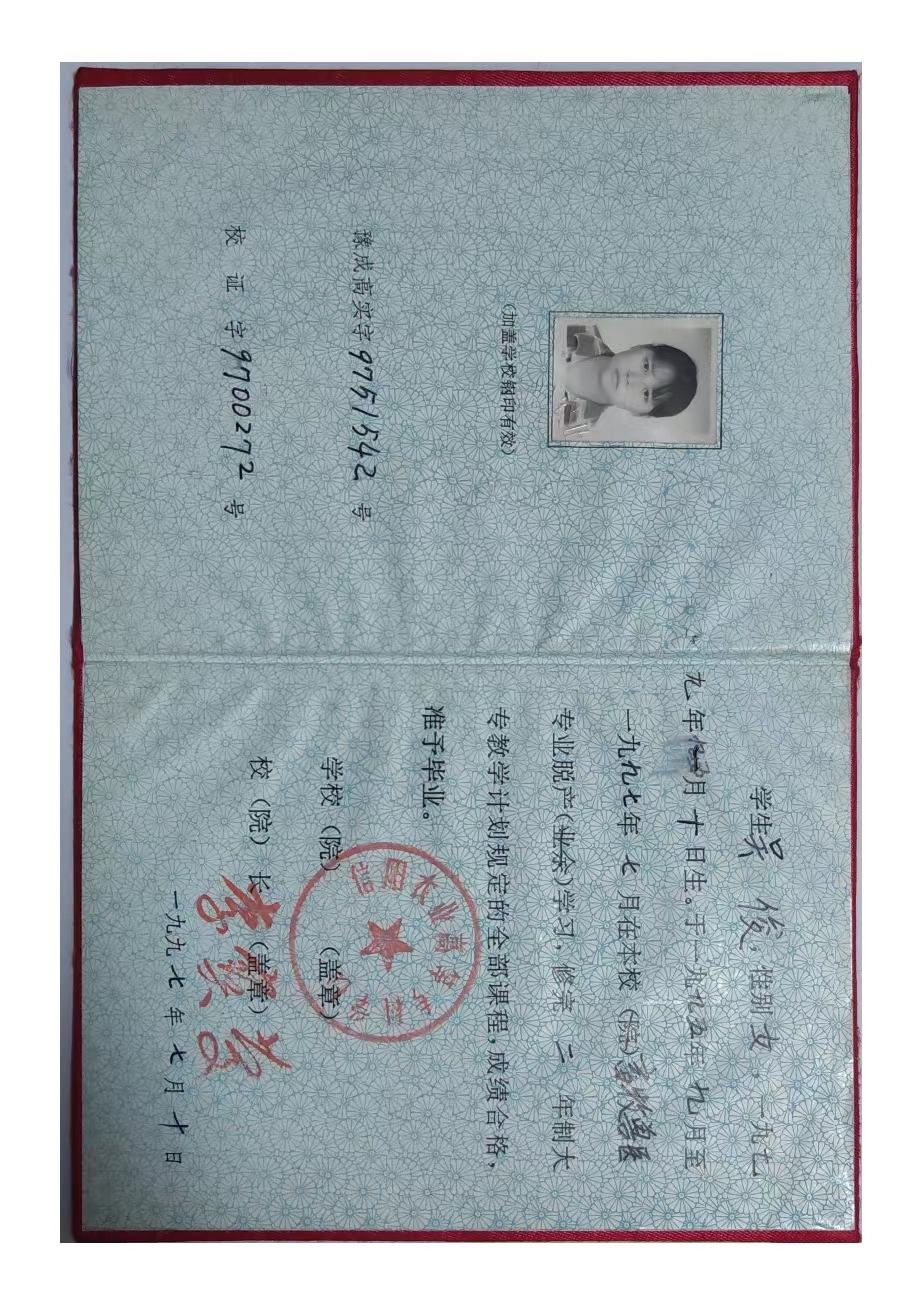 (加盖学校钢印有效)
豫成高实字9751542号
校证字9700272号
学生吴俊,性别女,一九七
九年 月十日生。于一九九五年九月至
一九九七年七月在本校(院)畜牧兽医
专业脱产(业余)学习,修完二年制大
专教学计划规定的全部课程,成绩合格,
准予毕业。
学校(院)(盖章)
校(院)长(盖章)
一九九七年七月十日